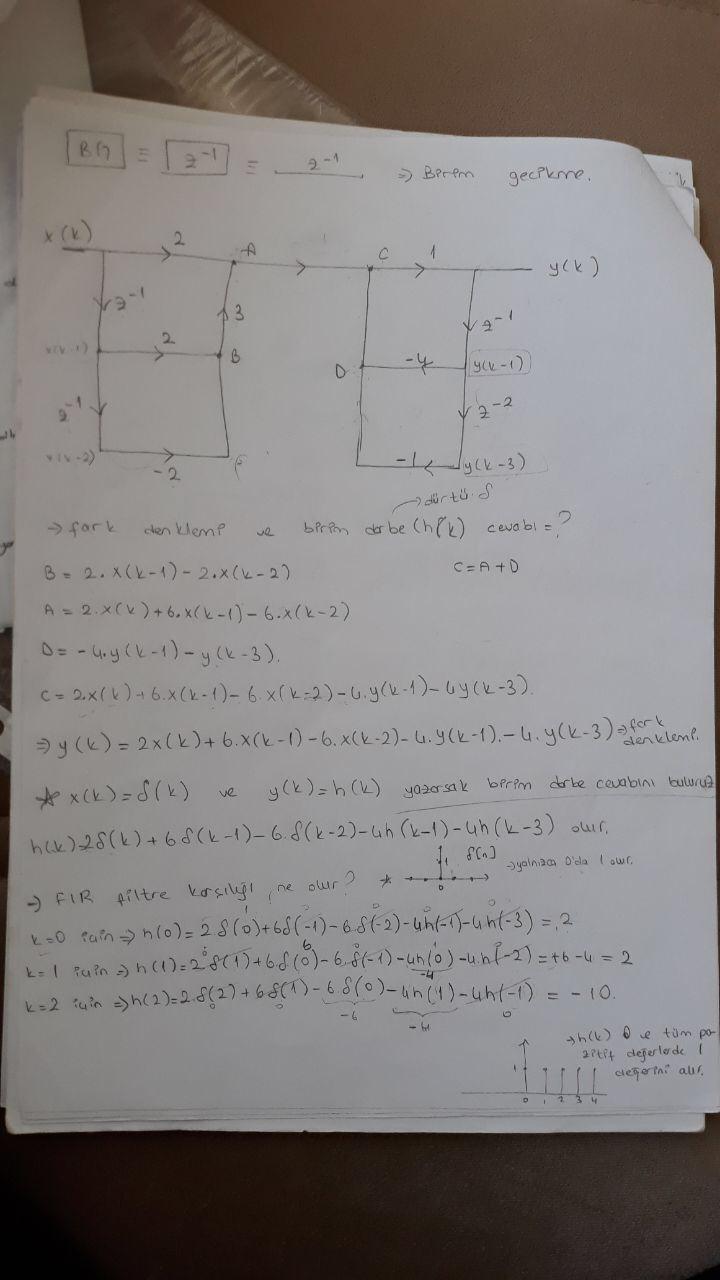 B(1) ≡ z⁻¹ ≡ z⁻¹ ⇒ Birim gecikme.
x(k) 2 A C 1 y(k)
z⁻¹ 3 z⁻¹
x(k-1) 2 B D -4 y(k-1)
z⁻¹ z⁻²
x(k-2) -2 -1 y(k-3)
→ dürtü δ
→ fark denklemi ve birim darbe (h(k) cevabı = ?
B = 2.x(k-1) - 2.x(k-2) C = A + D
A = 2.x(k) + 6.x(k-1) - 6.x(k-2)
D = -4.y(k-1) - y(k-3).
C = 2.x(k) + 6.x(k-1) - 6.x(k-2) - 4.y(k-1) - 4y(k-3).
⇒ y(k) = 2x(k) + 6.x(k-1) - 6.x(k-2) - 4.y(k-1). - 4.y(k-3) ⇒ fark denklemi.
* x(k) = δ(k) ve y(k) = h(k) yazarsak birim darbe cevabını buluruz
h(k) = 2δ(k) + 6δ(k-1) - 6.δ(k-2) - 4h(k-1) - 4h(k-3) olur.
→ FIR filtre karşılığı ne olur? * 1 δ[n] 0 → yalnızca 0'da 1 olur.
k=0 için ⇒ h(0) = 2δ(0) + 6δ(-1) - 6δ(-2) - 4h(-1) - 4h(-3) = 2
k=1 için ⇒ h(1) = 2δ(1) + 6.δ(0) - 6.δ(-1) - 4h(0) - 4.h(-2) = +6 - 4 = 2
-4
k=2 için ⇒ h(2) = 2.δ(2) + 6δ(1) - 6.δ(0) - 4h(1) - 4h(-1) = -10.
0 0 -6 0
→ h(k) 0 ve tüm po
zitif değerlerde 1
değerini alır.
1
0 1 2 3 4